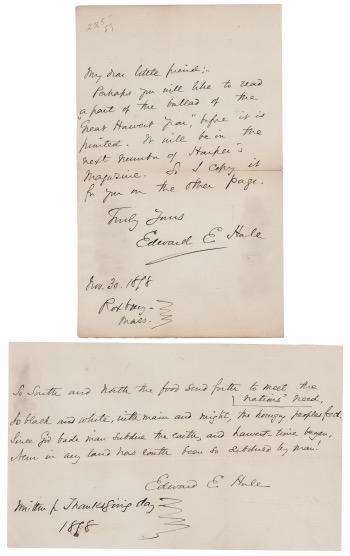 285
My dear little friend:-
Perhaps you will like to read
a part of the ballad of the
"Great Harvest Year," before it is
printed. It will be in the
next number of Harper's
Magazine. So I copy it
for you on the other page.
Truly Yours
Edward E Hale
Nov. 30. 1898
Roxbury
Mass.
So South and North the food send forth to meet the
nations' need,
So black and white, with main and might, the hungry peoples feed.
Since God bade man subdue the earth, and harvest time began,
Never in any land has earth been so subdued by man!
Edward E. Hale
Written for Thanksgiving day
1898